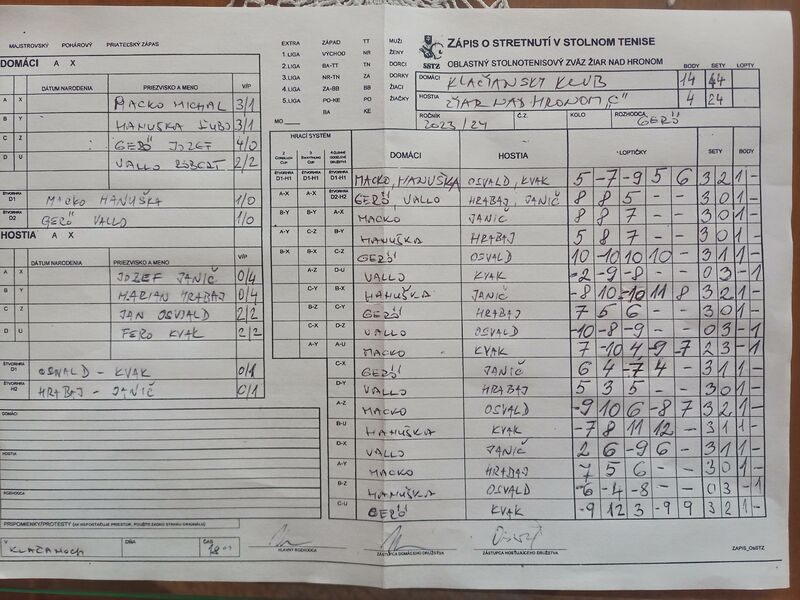 MAJSTROVSKÝ POHÁROVÝ PRIATEĽSKÝ ZÁPAS
DOMÁCI A X
DÁTUM NARODENIA PRIEZVISKO A MENO V/P
A X MACKO MICHAL 3/1
B Y HANUŠKA ĽUBO 3/1
C Z GERŐ JOZEF 4/0
D U VALLO RÓBERT 2/2
ŠTVORHRA D1 MACKO HANUŠKA 1/0
ŠTVORHRA D2 GERŐ VALLO 1/0
HOSTIA A X
DÁTUM NARODENIA PRIEZVISKO A MENO V/P
A X JOZEF JANIČ 0/4
B Y MARIAN HRABAJ 0/4
C Z JAN OSVALD 2/2
D U FERO KVAK 2/2
ŠTVORHRA D1 OSVALD - KVAK 0/1
ŠTVORHRA H2 HRABAJ - JANIČ 0/1
DOMÁCI
HOSTIA
ROZHODCA
PRIPOMIENKY/PROTESTY (AK NEPOSTAČUJE PRIESTOR, POUŽITE ZADNÚ STRANU ORIGINÁLU)
V KLAČANOCH DŇA ČAS 18:00
EXTRA ZÁPAD TT MUŽI
1.LIGA VÝCHOD NR ŽENY
2.LIGA BA-TT TN DORCI
3.LIGA NR-TN ZA DORKY
4.LIGA ZA-BB BB ŽIACI
5.LIGA PO-KE PO ŽIAČKY
BA KE
MO
SSTZ
ZÁPIS O STRETNUTÍ V STOLNOM TENISE
OBLASTNÝ STOLNOTENISOVÝ ZVÄZ ŽIAR NAD HRONOM
BODY SETY LOPTY
DOMÁCI KLAČIANSKY KLUB 14 44
HOSTIA ŽIAR NAD HRONOM "C" 4 24
ROČNÍK 2023/24 Č.Z. KOLO ROZHODCA GERŐ
HRACÍ SYSTÉM DOMÁCI HOSTIA LOPTIČKY SETY BODY
D1-H1 D1-H1 D1-H1 MACKO, HANUŠKA OSVALD, KVAK 5 -7 -9 5 6 3 2 1 -
A-X A-X D2-H2 GERŐ, VALLO HRABAJ, JANIČ 8 8 5 - - 3 0 1 -
B-Y B-Y A-X MACKO JANIČ 8 8 7 - - 3 0 1 -
A-Y C-Z B-Y HANUŠKA HRABAJ 5 8 7 - - 3 0 1 -
B-X B-X C-Z GERŐ OSVALD 10 -10 10 10 - 3 1 1 -
A-Z D-U VALLO KVAK -2 -9 -8 - - 0 3 - 1
C-Y B-X HANUŠKA JANIČ -8 10 -10 11 8 3 2 1 -
B-Z C-Y GERŐ HRABAJ 7 5 6 - - 3 0 1 -
C-X D-Z VALLO OSVALD -10 -8 -9 - - 0 3 - 1
A-Y A-U MACKO KVAK 7 -10 4 -9 -7 2 3 - 1
C-X GERŐ JANIČ 6 4 -7 4 - 3 1 1 -
D-Y VALLO HRABAJ 5 3 5 - - 3 0 1 -
A-Z MACKO OSVALD -9 10 6 -8 7 3 2 1 -
B-U HANUŠKA KVAK -7 8 11 12 - 3 1 1 -
D-X VALLO JANIČ 2 6 -9 6 - 3 1 1 -
A-Y MACKO HRABAJ 7 5 6 - - 3 0 1 -
B-Z HANUŠKA OSVALD -6 -4 -8 - - 0 3 - 1
C-U GERŐ KVAK -9 12 3 -9 9 3 2 1 -
HLAVNÝ ROZHODCA ZÁSTUPCA DOMÁCEHO DRUŽSTVA ZÁSTUPCA HOSŤUJÚCEHO DRUŽSTVA ZAPIS_ObSTZ